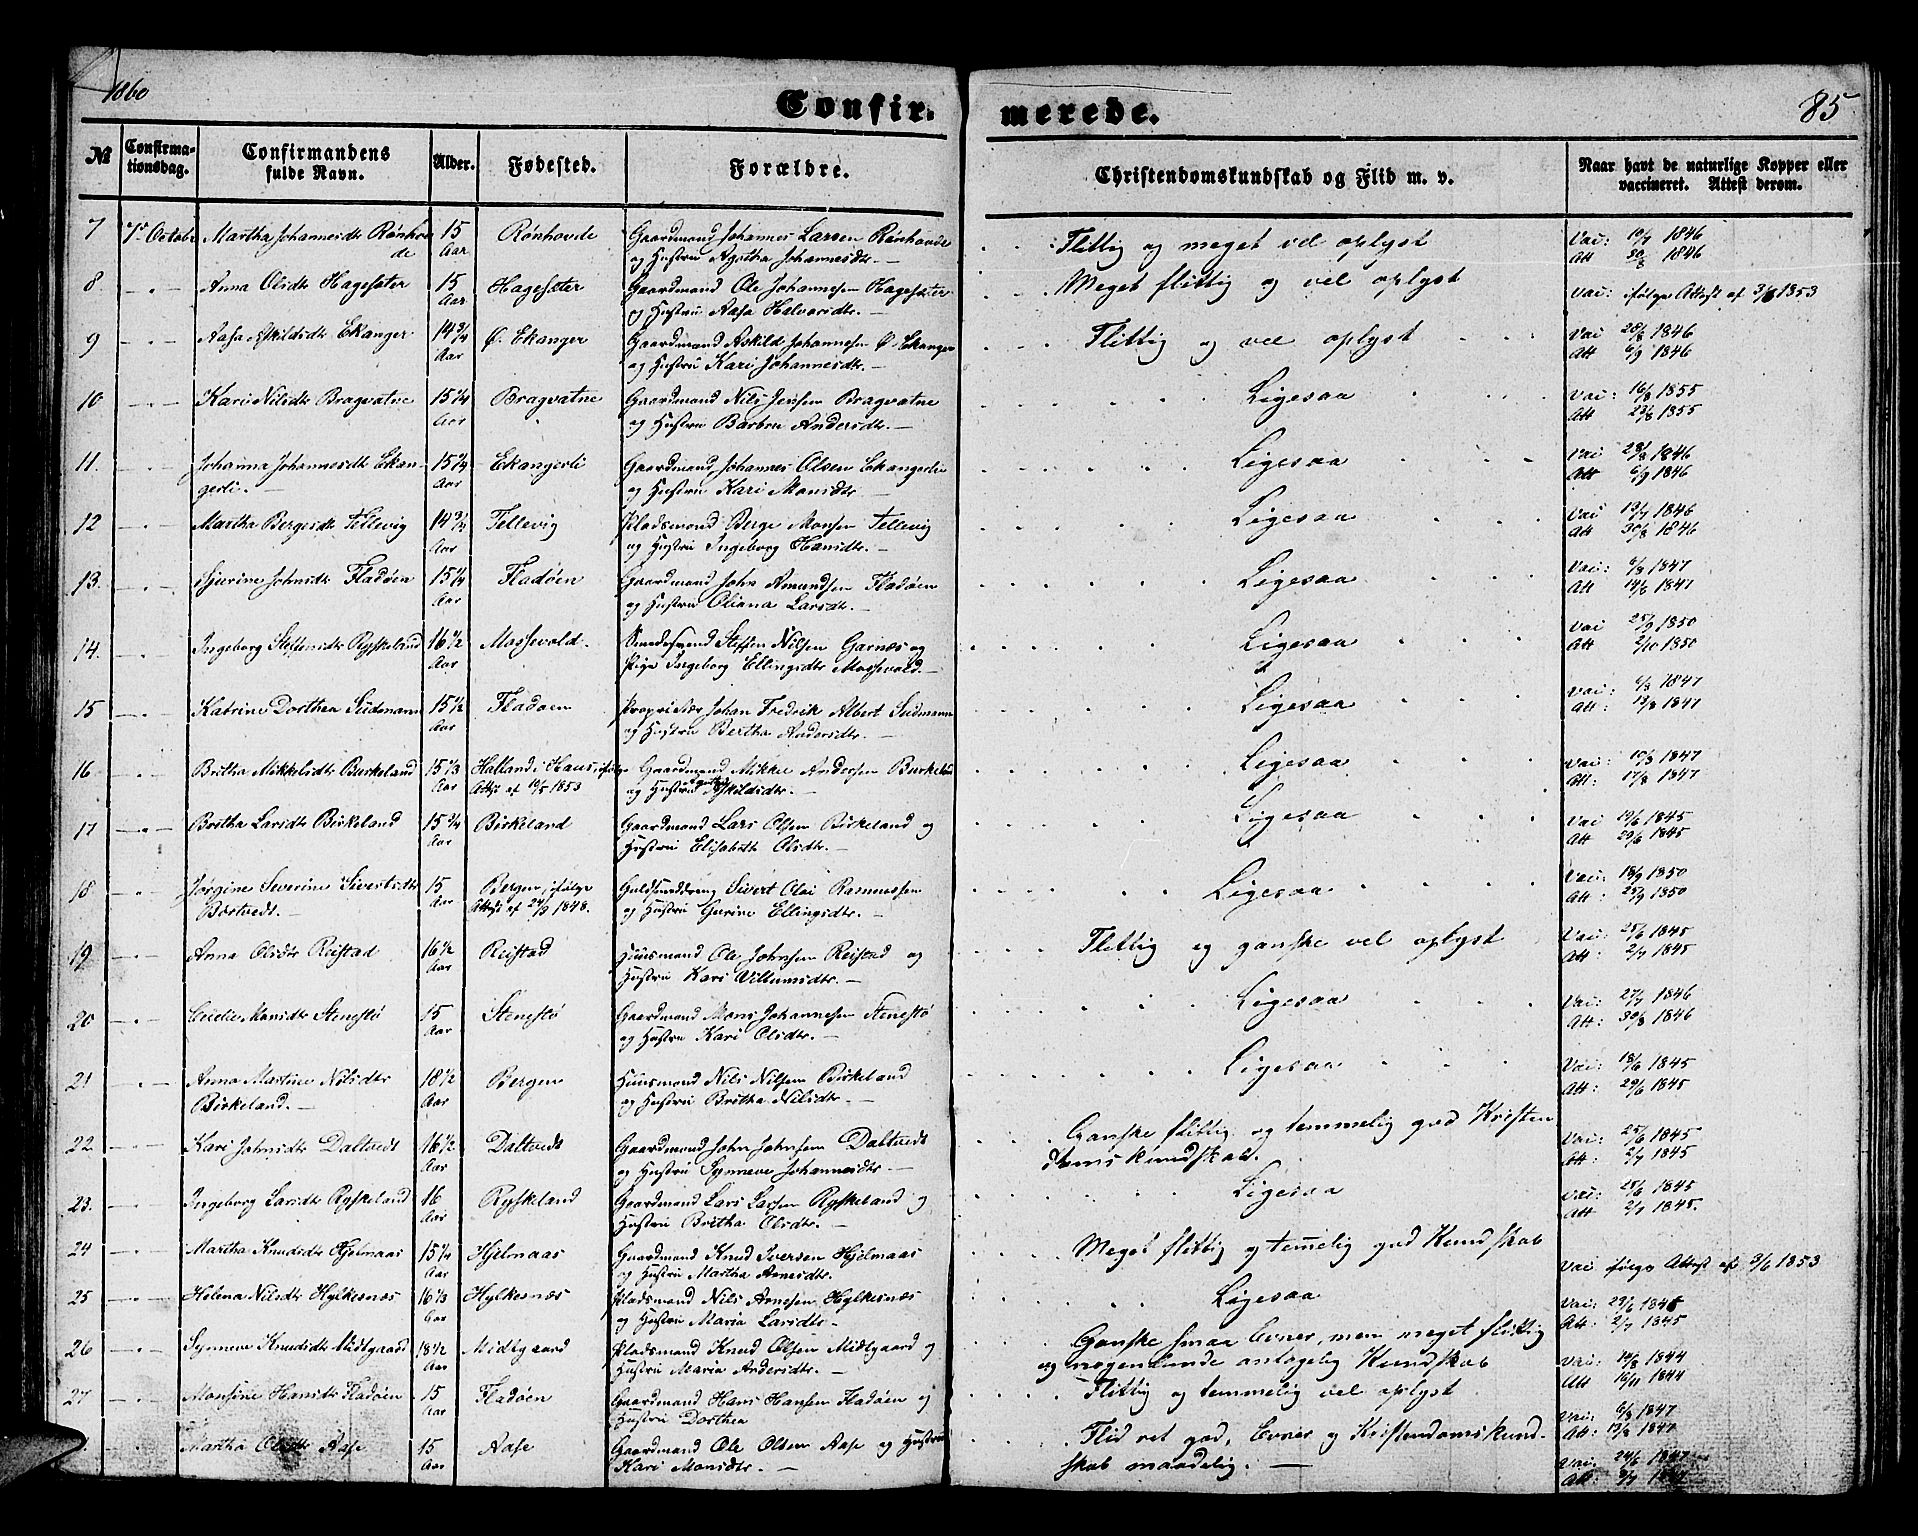 1860
85
Confir- merede.
№ Confirma-tionsdag. Confirmandens fulde Navn. Alder. Fødested. Forældre. Christendomskundskab og Flid m. v. Naar havt de naturlige Kopper eller vaccineret. Attest derom.
7 7de Octobr Martha Johannesdtr Rønhov 15 Rønhovde Gaardmand Johannes Larsen Rønhovde Flittig og meget vel oplyst Vac: 19/7 1846
de Aar og Hustru Agatha Johannesdtr. Att 30/8 1846
8 Anna Olsdtr Hagesæter 15 Hagesæter Gaardmand Ole Johannesen Hagesæter Meget flittig og vel oplyst
Aar og Hustru Aasa Halvorsdtr. Vac: ifølge Attest af 3/6 1853
9 Aasa Askildsdtr Ekanger 14 3/4 Ø. Ekanger Gaardmand Askild Johannesen Ø. Ekanger Flittig og vel oplyst Vac 28/8 1846
Aar og Hustru Kari Johannesdtr. Att 6/9 1846
10 Kari Nilsdtr Bragvatne 15 1/4 Bragvatne Gaardmand Nils Jensen Bragvatne Ligesaa Vac: 16/8 1855
Aar og Hustru Barbra Andersdtr. Att 23/8 1855
11. Johanna Johannesdtr Ekan- 15 1/4 Ekangerli Gaardmand Johannes Olsen Ekangerli Ligesaa Vac 28/8 1846
gerli. Aar og Hustru Kari Monsdtr Att 6/9 1846
12 Martha Bergesdtr Tellevig 14 3/4 Tellevig Pladsmand Berge Monsen Tellevig Ligesaa Vac 13/7 1846
Aar og Hustru Ingeborg Hansdtr. Att 30/8 1846
13. Sjurine Johnsdtr Fladøen 15 1/4 Fladøen Gaardmand John Amundsen Fladøen Ligesaa Vac: 6/8 1847
Aar og Hustru Oliana Larsdtr. Att 14/8 1847
14. Ingeborg Steffensdtr Ryskeland 16 1/2 Massevold. Smedesvend Steffen Nilsen Garnæs og Ligesaa Vac 25/9 1850
Aar Pige Ingeborg Ellingsdtr Massevold. Att 2/10 1850
15 Katrine Dorthea Sudmann 15 1/2 Fladøen Proprietær Johan Fredrik Albert Sudmann Ligesaa Vac: 6/8 1847
Aar og Hustru Bertha Andersdtr. Att: 13/8 1847
16 Britha Mikkelsdtr Birkeland 15 1/3 Halland i Haus, ifølge Gaardmand Mikkel Andersen Birkeland Ligesaa Vac: 10/8 1847
Aar Attst af 10/5 1853 og Hustru Askildsdtr. Att: 17/8 1847
17 Britha Larsdtr Birkeland 15 3/4 Birkeland Gaardmand Lars Olsen Birkeland og Ligesaa Vac 19/6 1845
Aar Hustru Elisabeth Olsdtr. Att 29/6 1845
18 Jørgine Severine Sivertsdtr 15 Bergen, ifølge Guldsmeddreng Sivert Olai Rasmussen Ligesaa Vac: 18/9 1850
Børtvedt. Aar Attst af 24/9 1848. og Hustru Gurine Ellingsdtr. Att: 25/9 1850
19 Anna Olsdtr Reistad 16 1/2 Reistad Huusmand Ole Johnsen Reistad og Flittig og ganske vel oplyst Vac: 25/6 1845
Aar Hustru Kari Villumsdtr. Att: 2/7 1845
20 Cicilie Monsdtr Stenestø 15 Stenestø Gaardmand Mons Johannesen Stenestø Ligesaa Vac: 27/7 1846
Aar og Hustru Kari Olsdtr. Att: 30/8 1846
21 Anna Martine Nilsdtr 18 1/2 Bergen Huusmand Nils Nilsen Birkeland Ligesaa Vac: 18/6 1845
Birkeland. Aar og Hustru Britha Nilsdtr. Att: 29/6 1845
22. Kari Johnsdtr Daltvedt 16 1/2 Daltvedt Gaardmand John Johnsen Daltvedt Ganske flittig og temmelig god Kristen Vac: 25/6 1845
Aar og Hustru Synneve Johannesdtr. domskundskab. Att: 2/7 1845
23. Ingeborg Larsdtr Ryskeland 16 Ryskeland Gaardmand Lars Larsen Ryskeland og Ligesaa Vac: 25/6 1845
Aar Hustru Britha Olsdtr. Att 2/7 1845.
24 Martha Knudsdtr Hjelmaas 15 1/4 Hjelmaas Gaardmand Knud Iversen Hjelmaas Meget flittig og temelig god Kundskab
Aar og Hustru Martha Arnesdtr. Vac ifølge Attest af 3/6 1853
25 Helena Nilsdtr Hylkesnæs 16 1/3 Hylkesnæs Pladsmand Nils Arnesen Hylkesnæs Ligesaa Vac: 29/6 1845
Aar og Hustru Maria Larsdtr. Att: 2/7 1845
26 Synneve Knudsdtr Midtgaard 18 1/2 Midtgaard Pladsmand Knud Olsen Midtgaard og Ganske smaa Evner, men meget flittig
Aar Hustru Maria Andersdtr. og nogenlunde antagelig Kundskab Vac: 14/8 1844
Att 16/11 1844
27 Monsine Hansdtr Fladøen 15 Fladøen Gaardmand Hans Hansen Fladøen og Flittig og temmelig vel oplyst
Aar Hustru Dorthea Vac: 6/8 1847
Att: 13/8 1847
Martha Olsdtr Aase 15 Aase Gaardmand Ole Olsen Aase og Hustru Flid ret god, Evner og Kristendomskund-
Aar Kari Monsdtr. skab maadelig. Vac: 24/6 1847
Att: